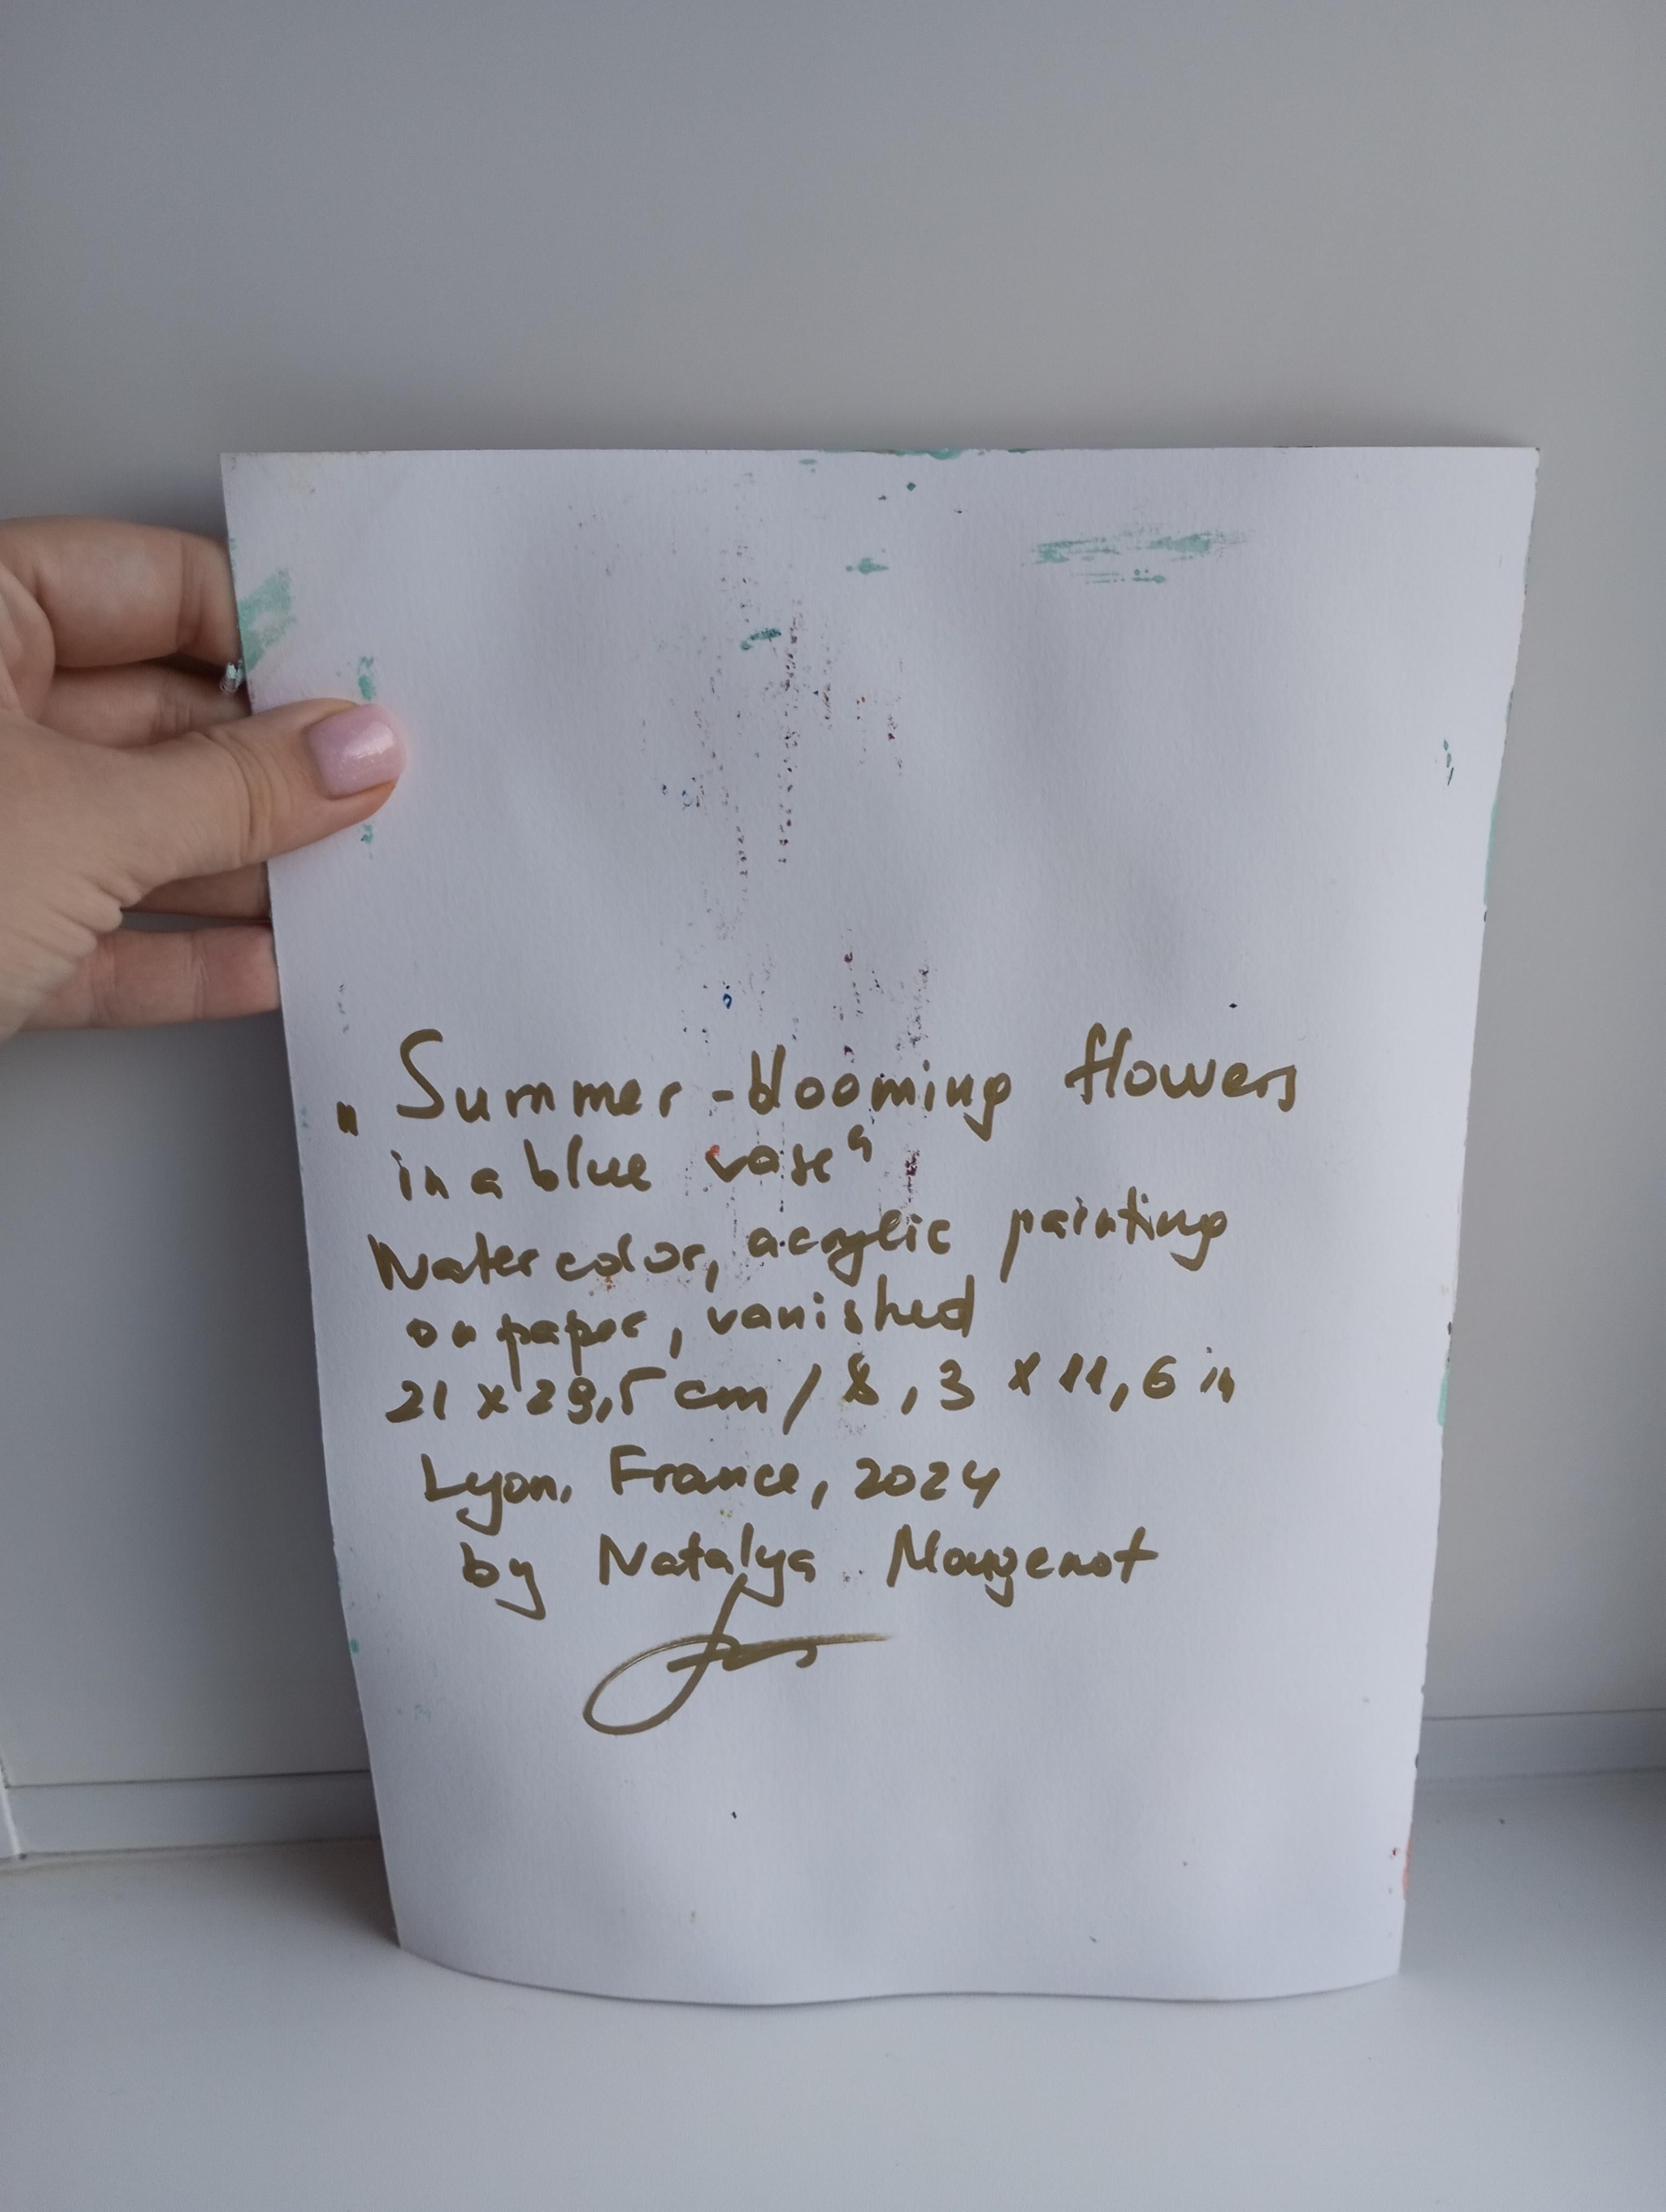 „Summer-blooming flowers
in a blue vase“
Watercolor, acrylic painting
on paper, vanished
21 x 29,5 cm / 8,3 x 11,6 in
Lyon, France, 2024
by Natalya Mougenot